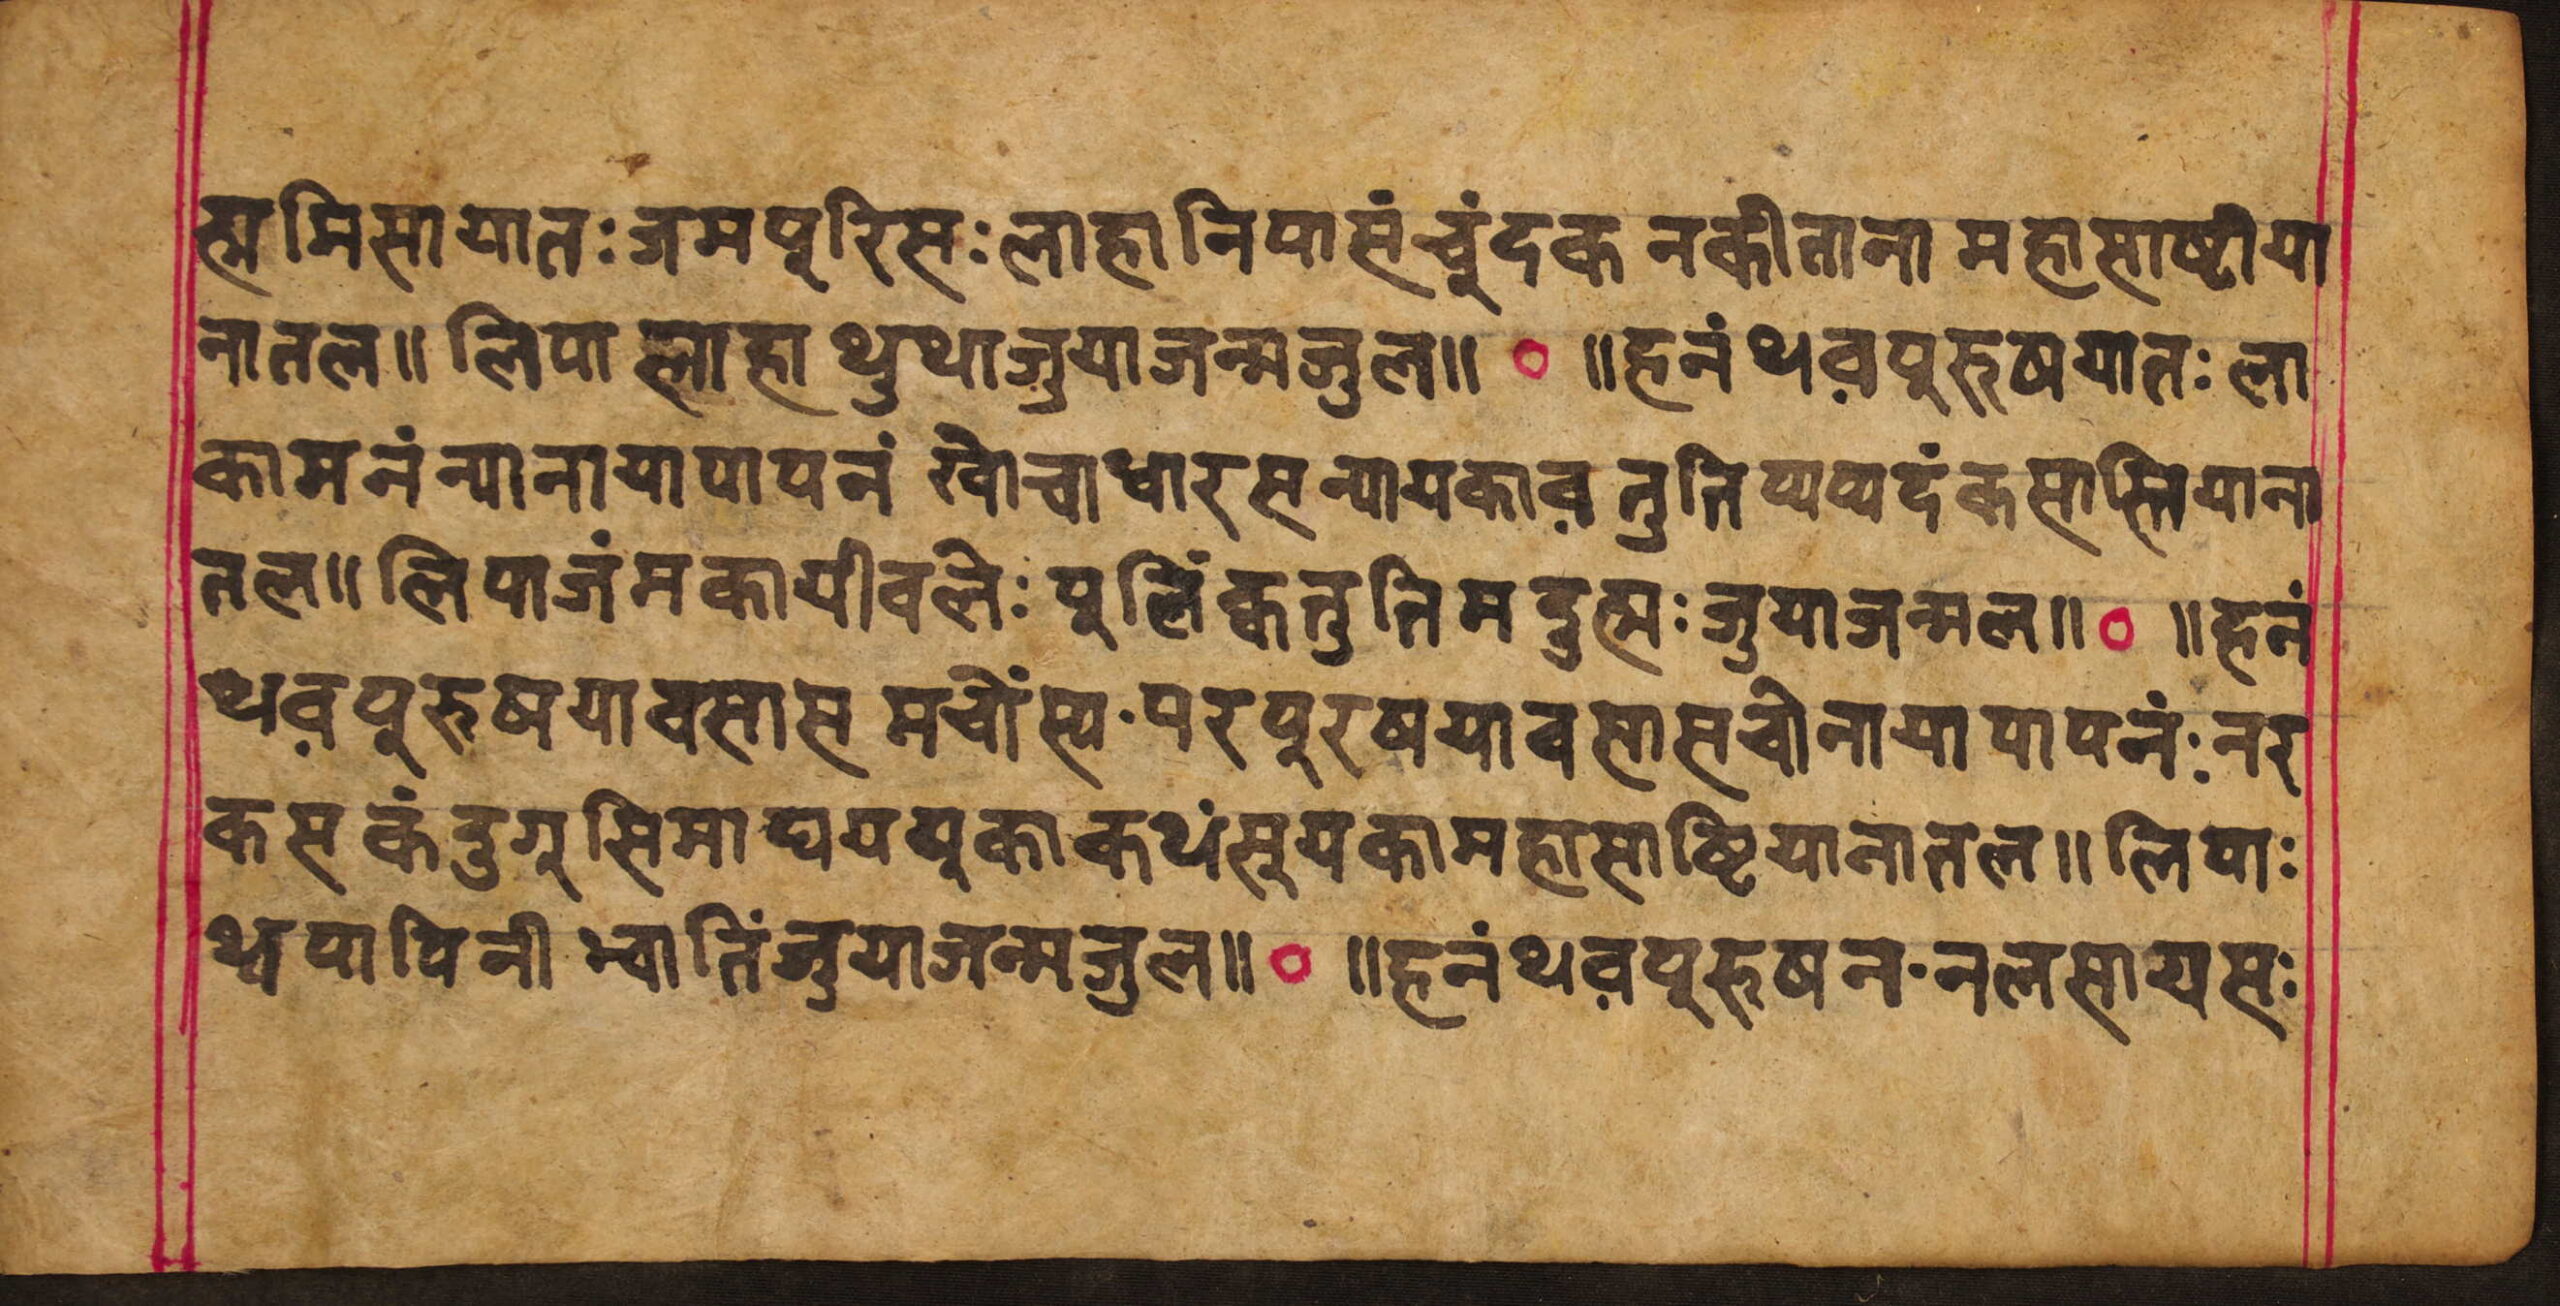 ह्म मिसायातः जमपूरिसः लाहानिपासं चूंदक नकीताना महासाष्टीया
नातल॥ लिपा लाहा थुथाजुयाजन्मजुल॥ ० ॥हनंथव़पुरूषयातः ला
कामनंन्यानायापापनं खोचाधारसन्यायकाव़तुतिप्यप्यदंकसास्तियाना
तल॥ लिपाजंमकायीवलेः पुलिंक्वतुतिमदुह्मः जुयाजन्मल॥ ० ॥हनं
थव़पुरूषयावसास मचोंस्य·परपूरषयावसासचोनायापापनं: नर
कस कंदुगूसिमा घययूकाकथंसूयकामहासाष्टियानातल॥ लिपाः
थ्वपापिनी भ्वातिंजुयाजन्मजुल॥ ० ॥हनंथव़पूरूषन·नलसायसः